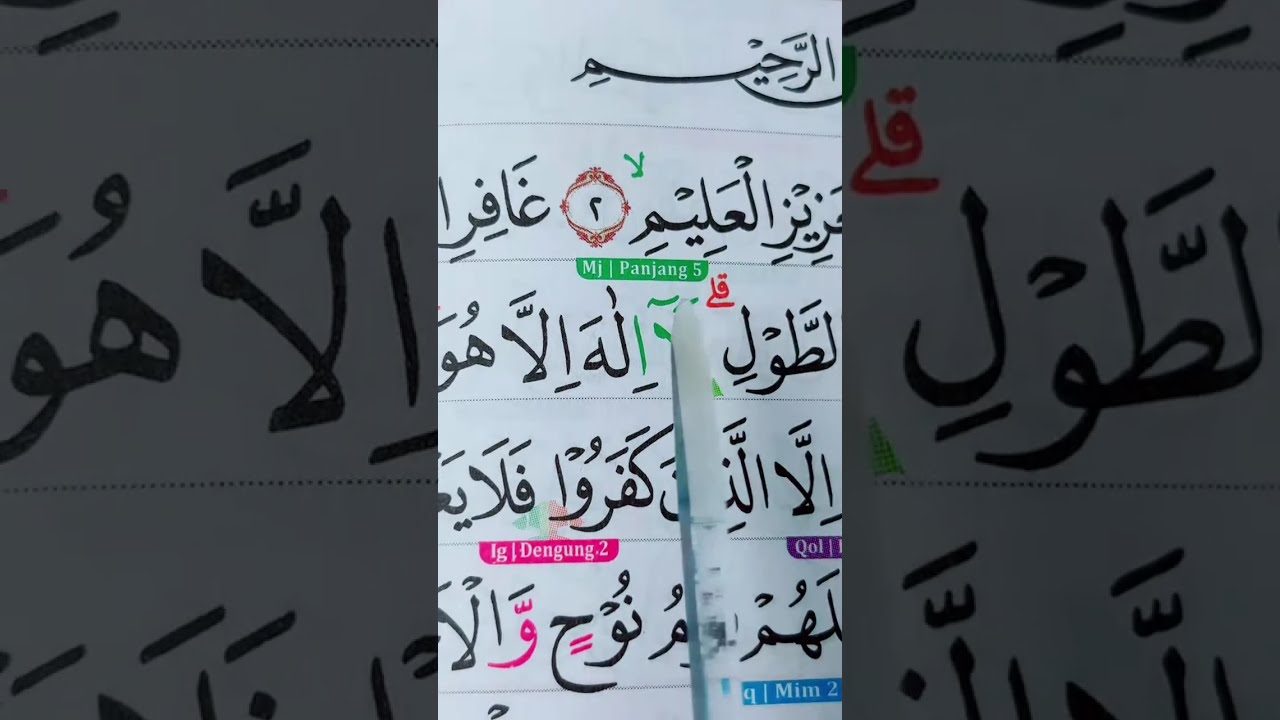 الرَّحِيْمِ
الْعَزِيْزِ الْعَلِيْمِ ۙ ٢ غَافِرِ
Mj | Panjang 5
الطَّوْلِ ۗ لَآ اِلٰهَ اِلَّا هُوَ
اِلَّا الَّذِيْنَ كَفَرُوْا فَلَا
Ig | Dengung 2
Qol
نُوْحٍ وَّالْاَ
Mim 2